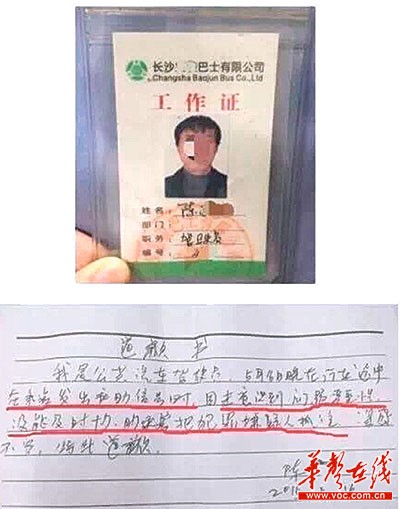 长沙 巴士有限公司
Changsha Baojun Bus Co.,Ltd
工作证
姓名：陈
部门：
职务：驾驶员
编号：
道歉书
我是公共汽车驾驶员，5月6日晚在行车途中
在乘客发出求助信号时，因未意识到问题严重性
没能及时协助乘客把犯罪嫌疑人抓住
特此道歉
陈
华声在线
www.voc.com.cn